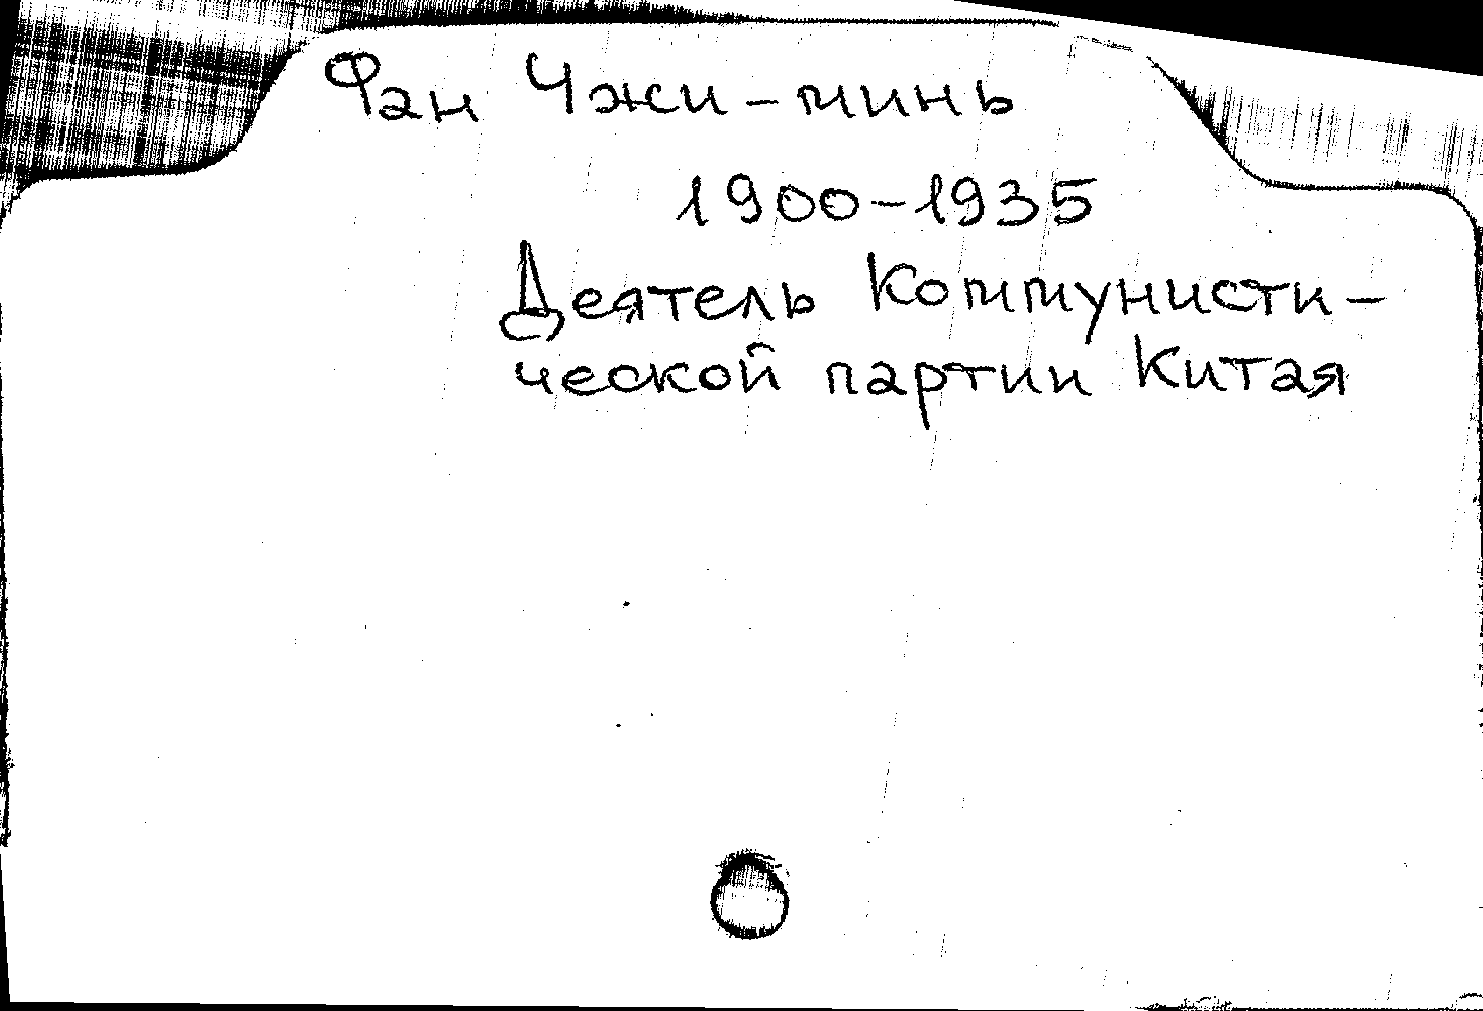 Фан Чжи-минь
1900-1935
Деятель Коммунисти-
ческой партии Китая